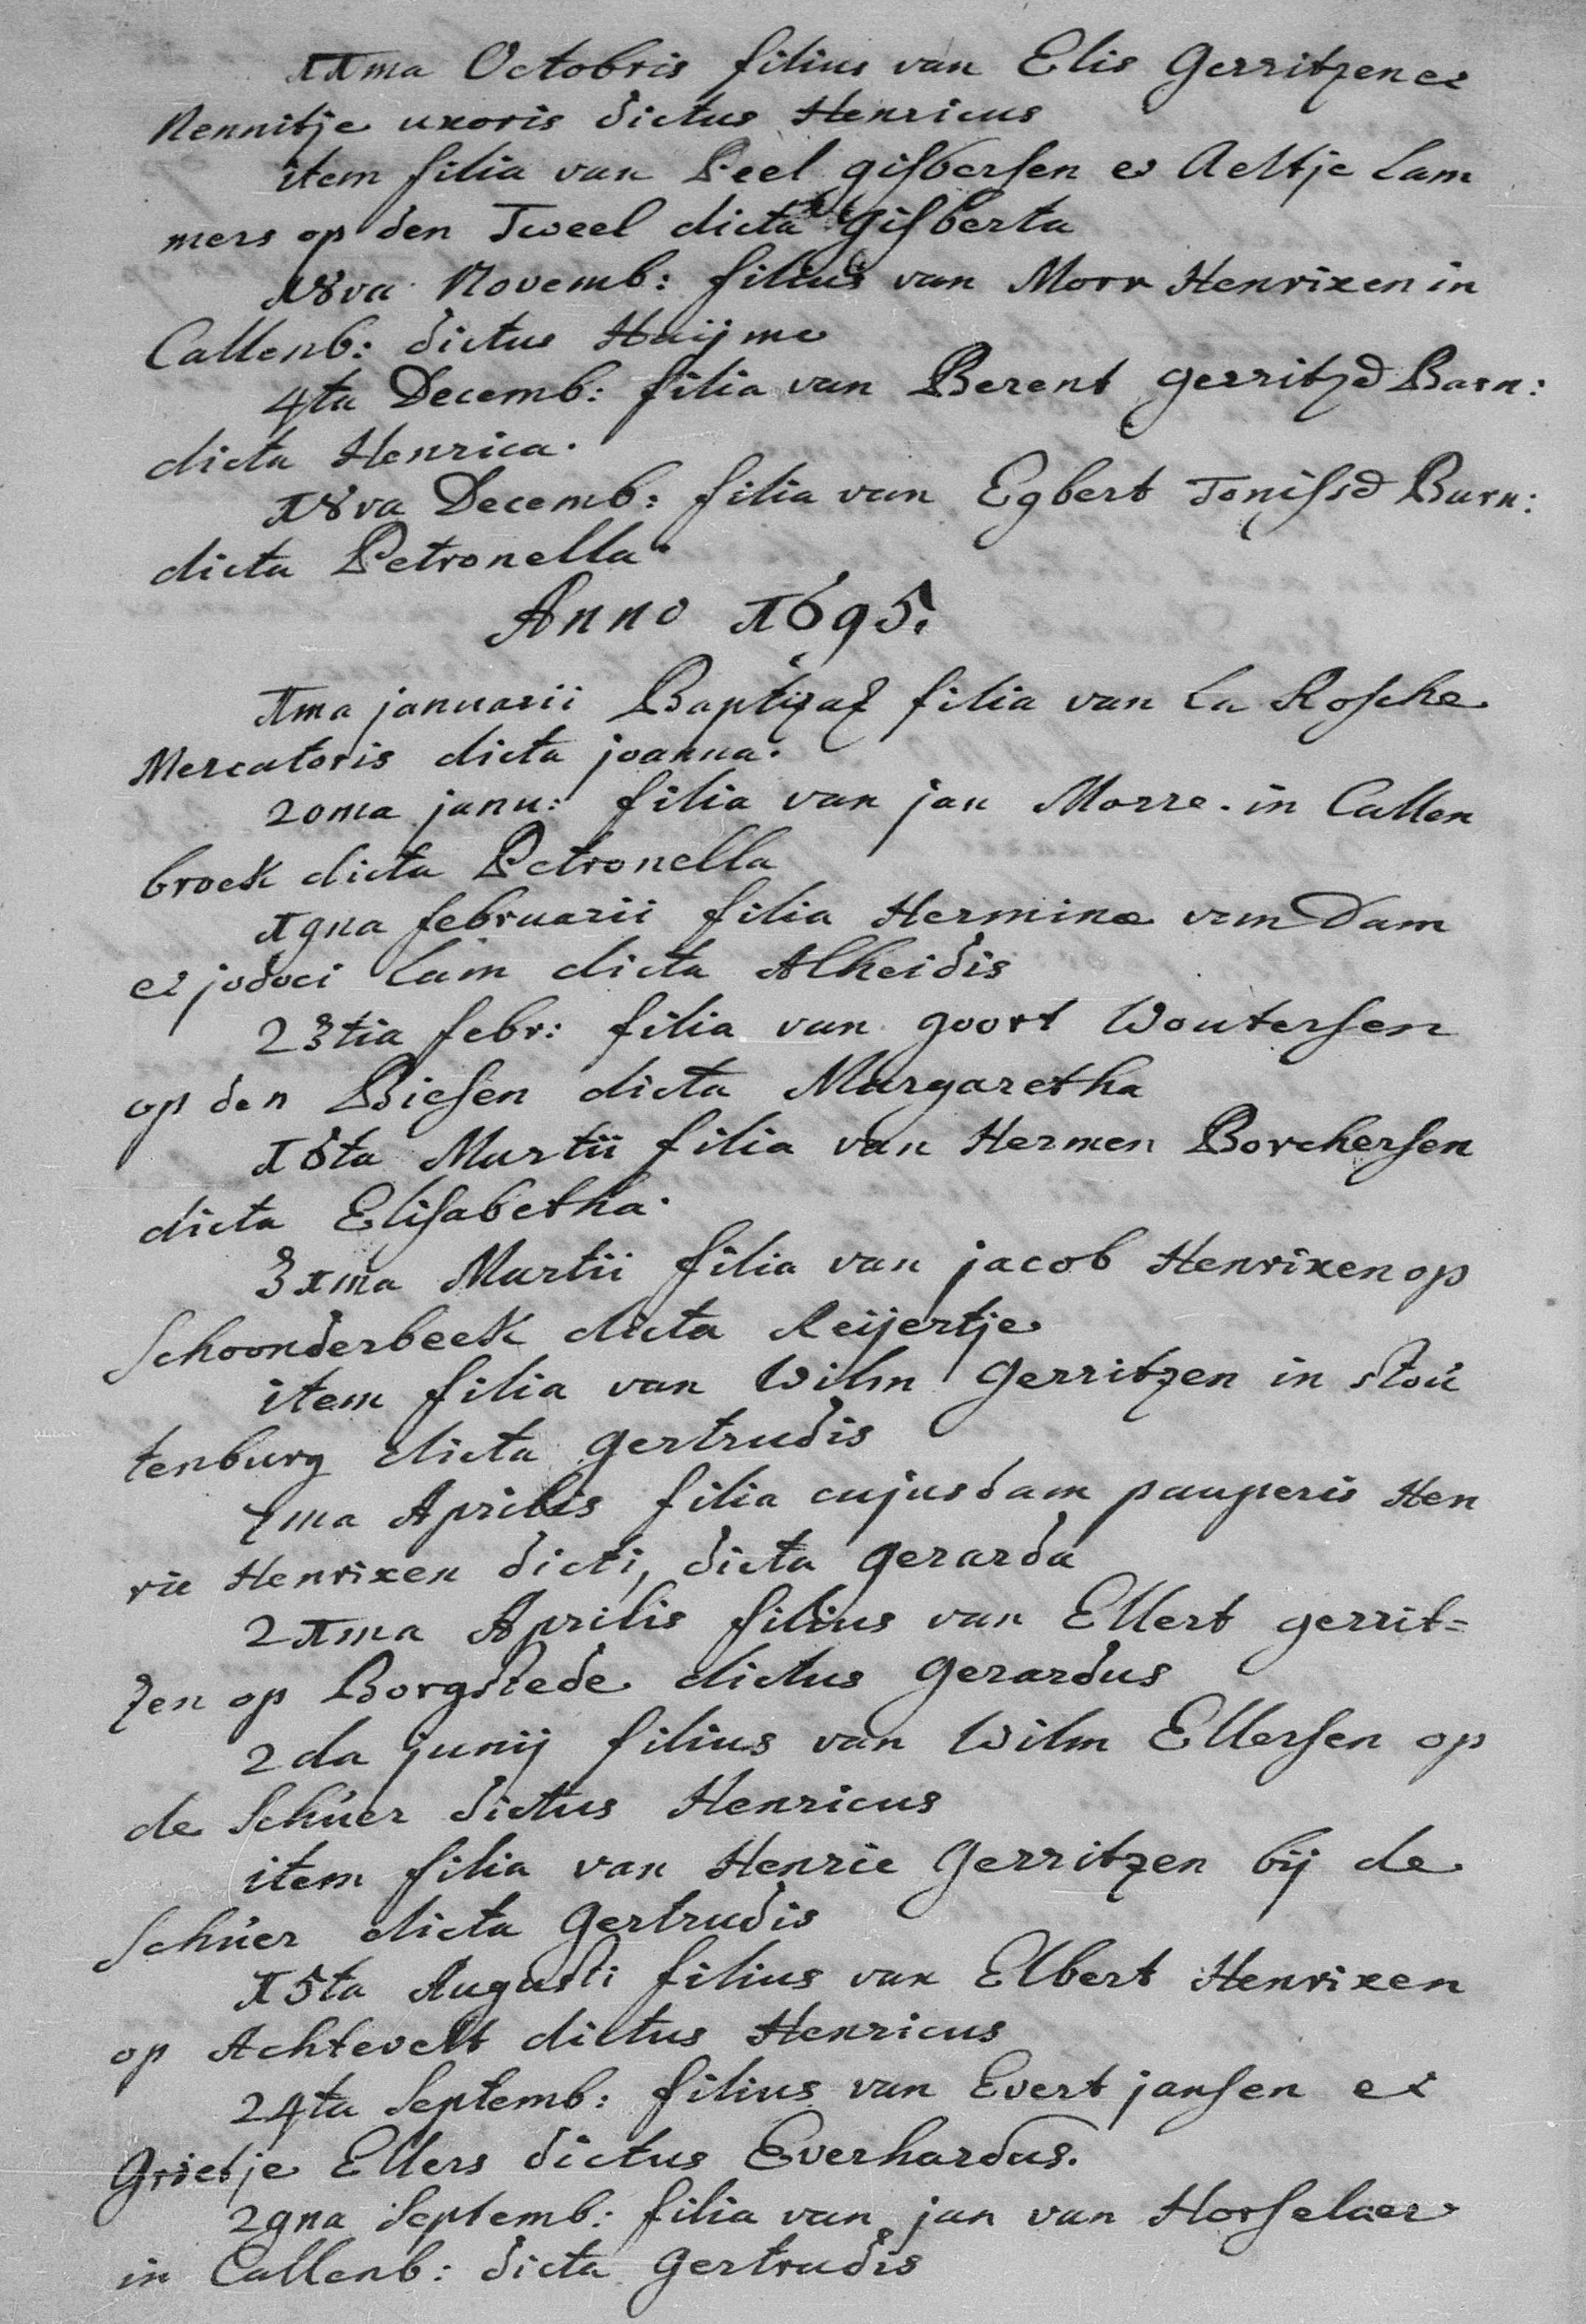 11ma Octobris filius van Elis Gerritzen et
Nennitje uxoris dictus Henricus
item filia van Peel gisbersen et Aeltje Lam
mers op den Tweel dicta Gisberta
18va Novemb: filius van Morr Henrixen in
Callenb: dictus Huijme
4ta Decemb: filia van Berent gerritzd Barn:
dicta Henrica.
18va Decemb: filia van Egbert Tonissd Barn:
dicta Petronella.
Anno 1695.
1ma januarii Baptizat filia van La Rosche
Mercatoris dicta joanna.
20ma janu: filia van jan Morre. in Callen
broek dicta Petronella
19na februarii filia Herminæ van Dam
et jodoci Lam dicta Alheidis
23tia febr: filia van goort Woutersen
op den Biesen dicta Margaretha
16ta Martii filia van Hermen Borchersen
dicta Elisabetha.
31ma Martii filia van jacob Henrixen op
Schoonderbeek dicta Reijertje
item filia van Wilm Gerritzen in stoú
tenburg dicta gertrudis
7ma Aprilis filia cujusdam pauperis Hen
ric Henrixen dicti, dicta gerarda
21ma Aprilis filius van Ellert gerrit=
zen op Borgstede dictus Gerardus
2da junij filius van Wilm Ellersen op
de Schúer dictus Henricus
item filia van Henric Gerritzen bij de
Schúer dicta Gertrudis
15ta Augusti filius van Elbert Henrixen
op Achtevelt dictus Henricus
24ta Septemb: filius van Evert jansen et
Grietje Ellers dictus Everhardus.
29na Septemb: filia van jan van Horselaer
in Callenb: dicta Gertrudis